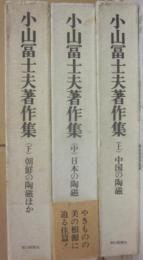 小山冨士夫著作集
(下) 朝鮮の陶磁ほか
朝日新聞社
小山冨士夫著作集
(中) 日本の陶磁
やきものの
美の根源に
迫る佳篇!
小山冨士夫著作集
(上) 中国の陶磁
朝日新聞社